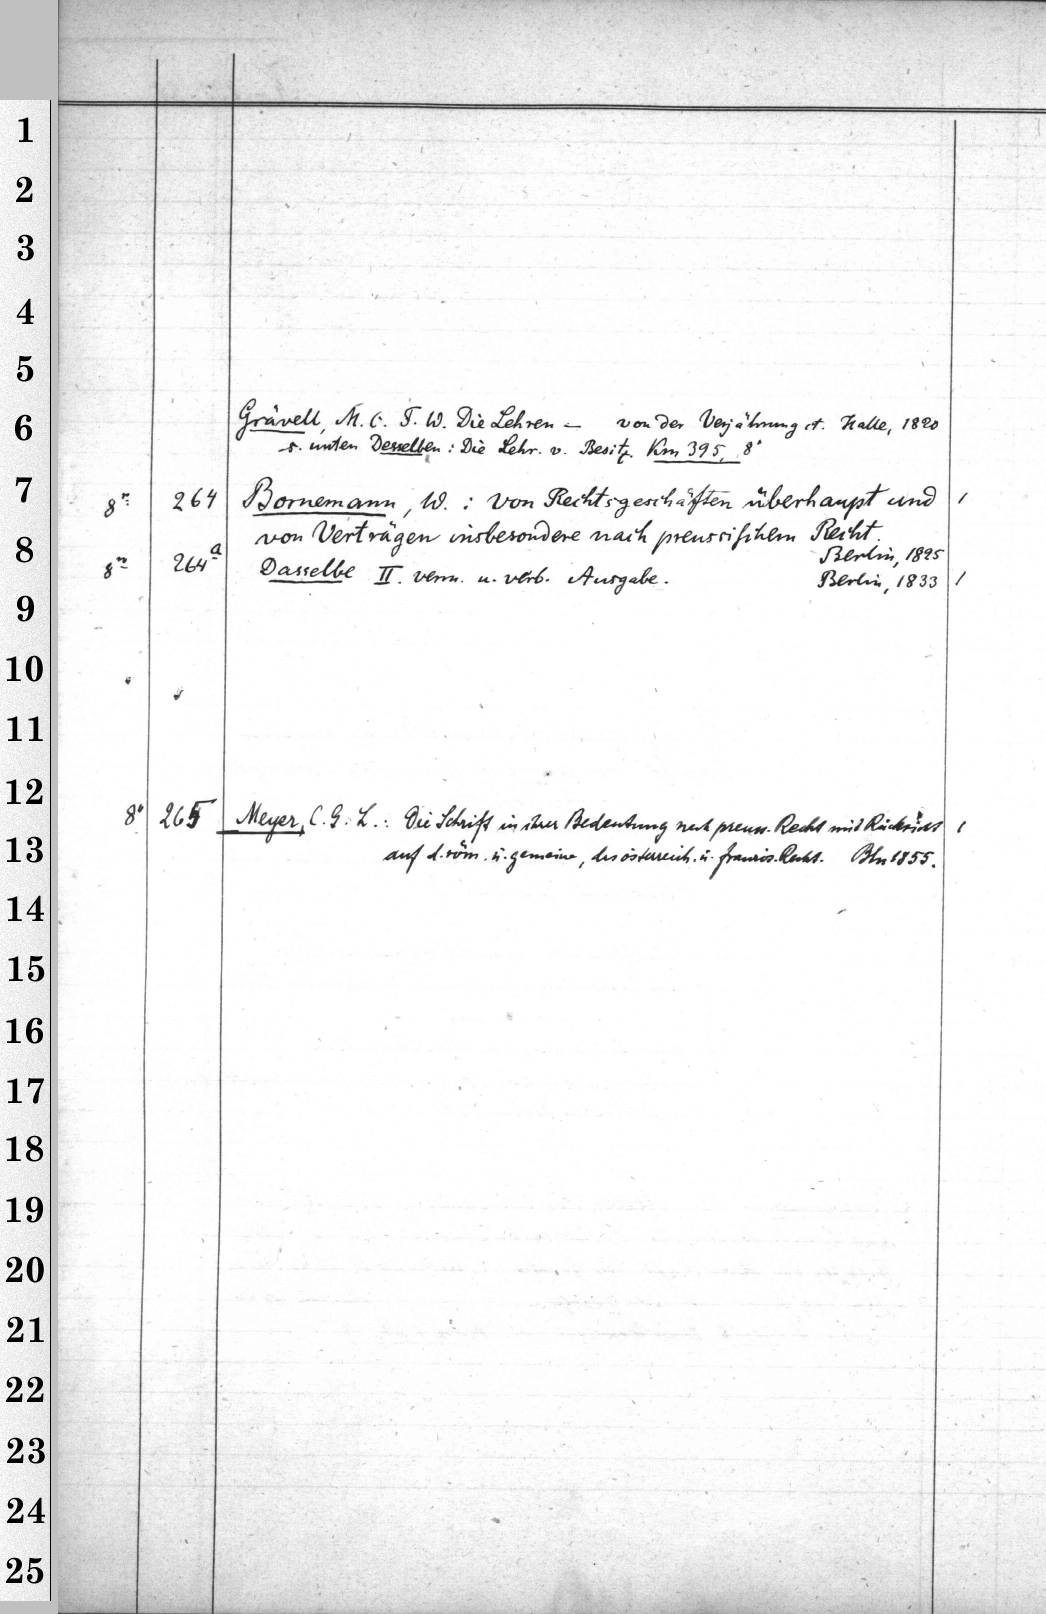 1
2
3
4
5
6
Grävell, M. C. F. W. Die Lehren — von der Verjährung etc. Halle, 1820
s. unten Desselben: Die Lehr. v. Besitz. Km 395, 8°
7
8° 264 Bornemann, W.: von Rechtsgeschäften überhaupt und /
8
von Verträgen insbesondere nach preussischem Recht.
Berlin, 1825
8° 264a Dasselbe II. verm. u. verb. Ausgabe. Berlin, 1833 /
9
10
11
12
8° 265 Meyer, C. G. L.: Die Schrift in ihrer Bedeutung nach preuss. Recht mit Rücksicht /
13
auf d. röm. u. gemeine, des österreich. u. französ. Recht. Bln 1855.
14
15
16
17
18
19
20
21
22
23
24
25